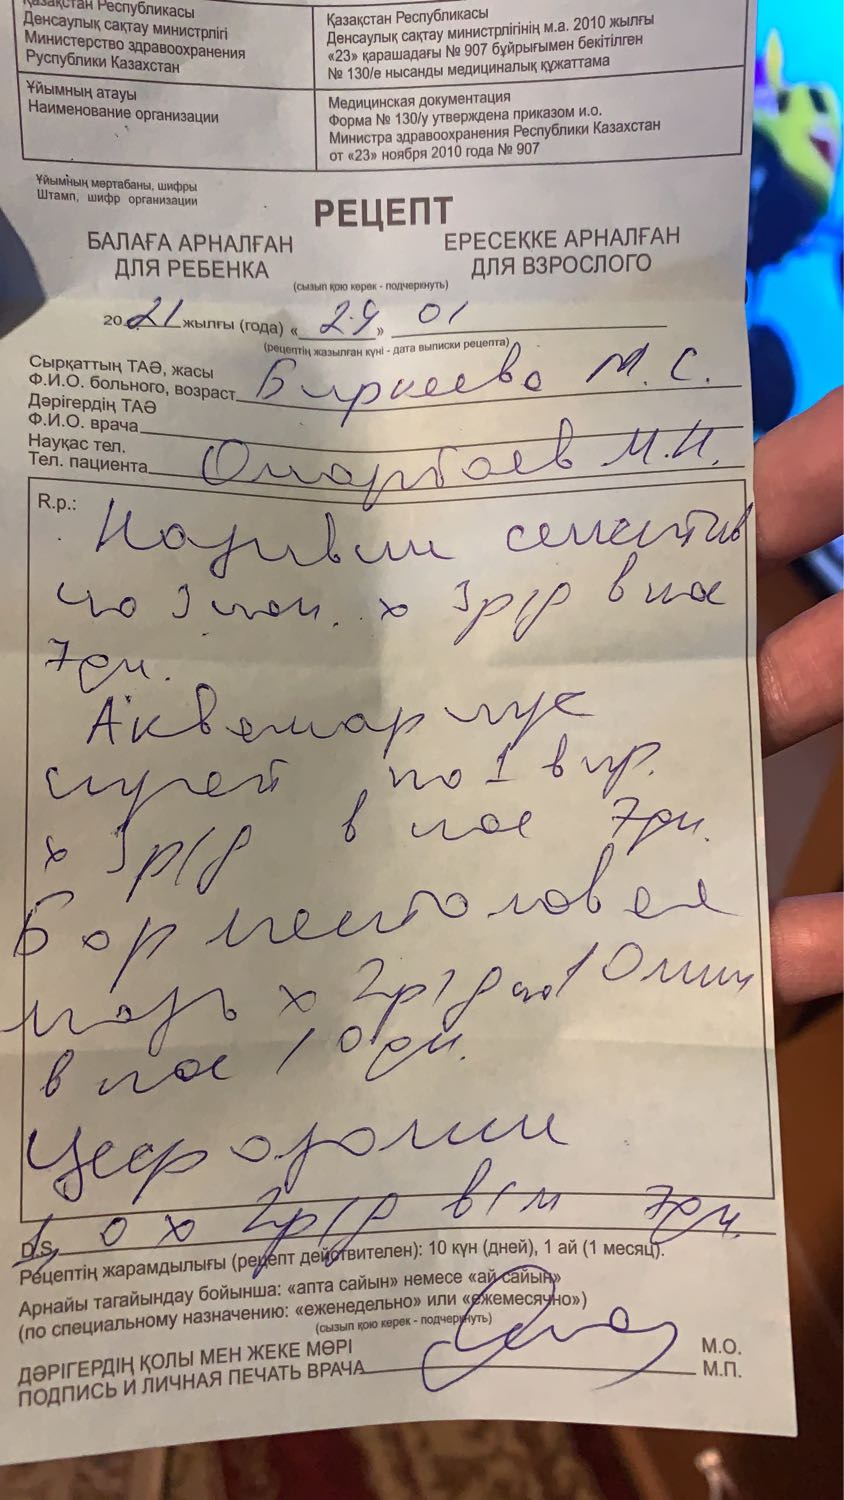 Қазақстан Республикасы
Денсаулық сақтау министрлігі
Министерство здравоохранения
Руспублики Казахстан
Қазақстан Республикасы
Денсаулық сақтау министрлігінің м.а. 2010 жылғы
«23» қарашадағы № 907 бұйрығымен бекітілген
№ 130/е нысанды медициналық құжаттама
Ұйымның атауы
Наименование организации
Медицинская документация
Форма № 130/у утверждена приказом и.о.
Министра здравоохранения Республики Казахстан
от «23» ноября 2010 года № 907
Ұйымның мөртабаны, шифры
Штамп, шифр организации
РЕЦЕПТ
БАЛАҒА АРНАЛҒАН
ДЛЯ РЕБЕНКА
ЕРЕСЕҚКЕ АРНАЛҒАН
ДЛЯ ВЗРОСЛОГО
(сызып қою керек - подчеркнуть)
2021 жылғы (года) «29» 01
(рецептің жазылған күні - дата выписки рецепта)
Сырқаттың ТАӘ, жасы
Ф.И.О. больного, возраст М. С.
Дәрігердің ТАӘ
Ф.И.О. врача
Науқас тел.
Тел. пациента Омартаев М.И.
R.p.:
Називин сенситив
по 3 х 3р/д в нос
7дн.
Аквамар
спрей по 1 впр.
х 3р/д в нос 7дн.
Бор ментоловая
мазь х 2р/д по 10мин
в нос 10дн.
Цефазолин
1,0 х 2р/д в/м 7дн.
D.S.
Рецептің жарамдылығы (рецепт действителен): 10 күн (дней), 1 ай (1 месяц).
Арнайы тағайындау бойынша: «апта сайын» немесе «ай сайын»
(по специальному назначению: «еженедельно» или «ежемесячно»)
(сызып қою керек - подчеркнуть)
ДӘРІГЕРДІҢ ҚОЛЫ МЕН ЖЕКЕ МӨРІ М.О.
ПОДПИСЬ И ЛИЧНАЯ ПЕЧАТЬ ВРАЧА М.П.